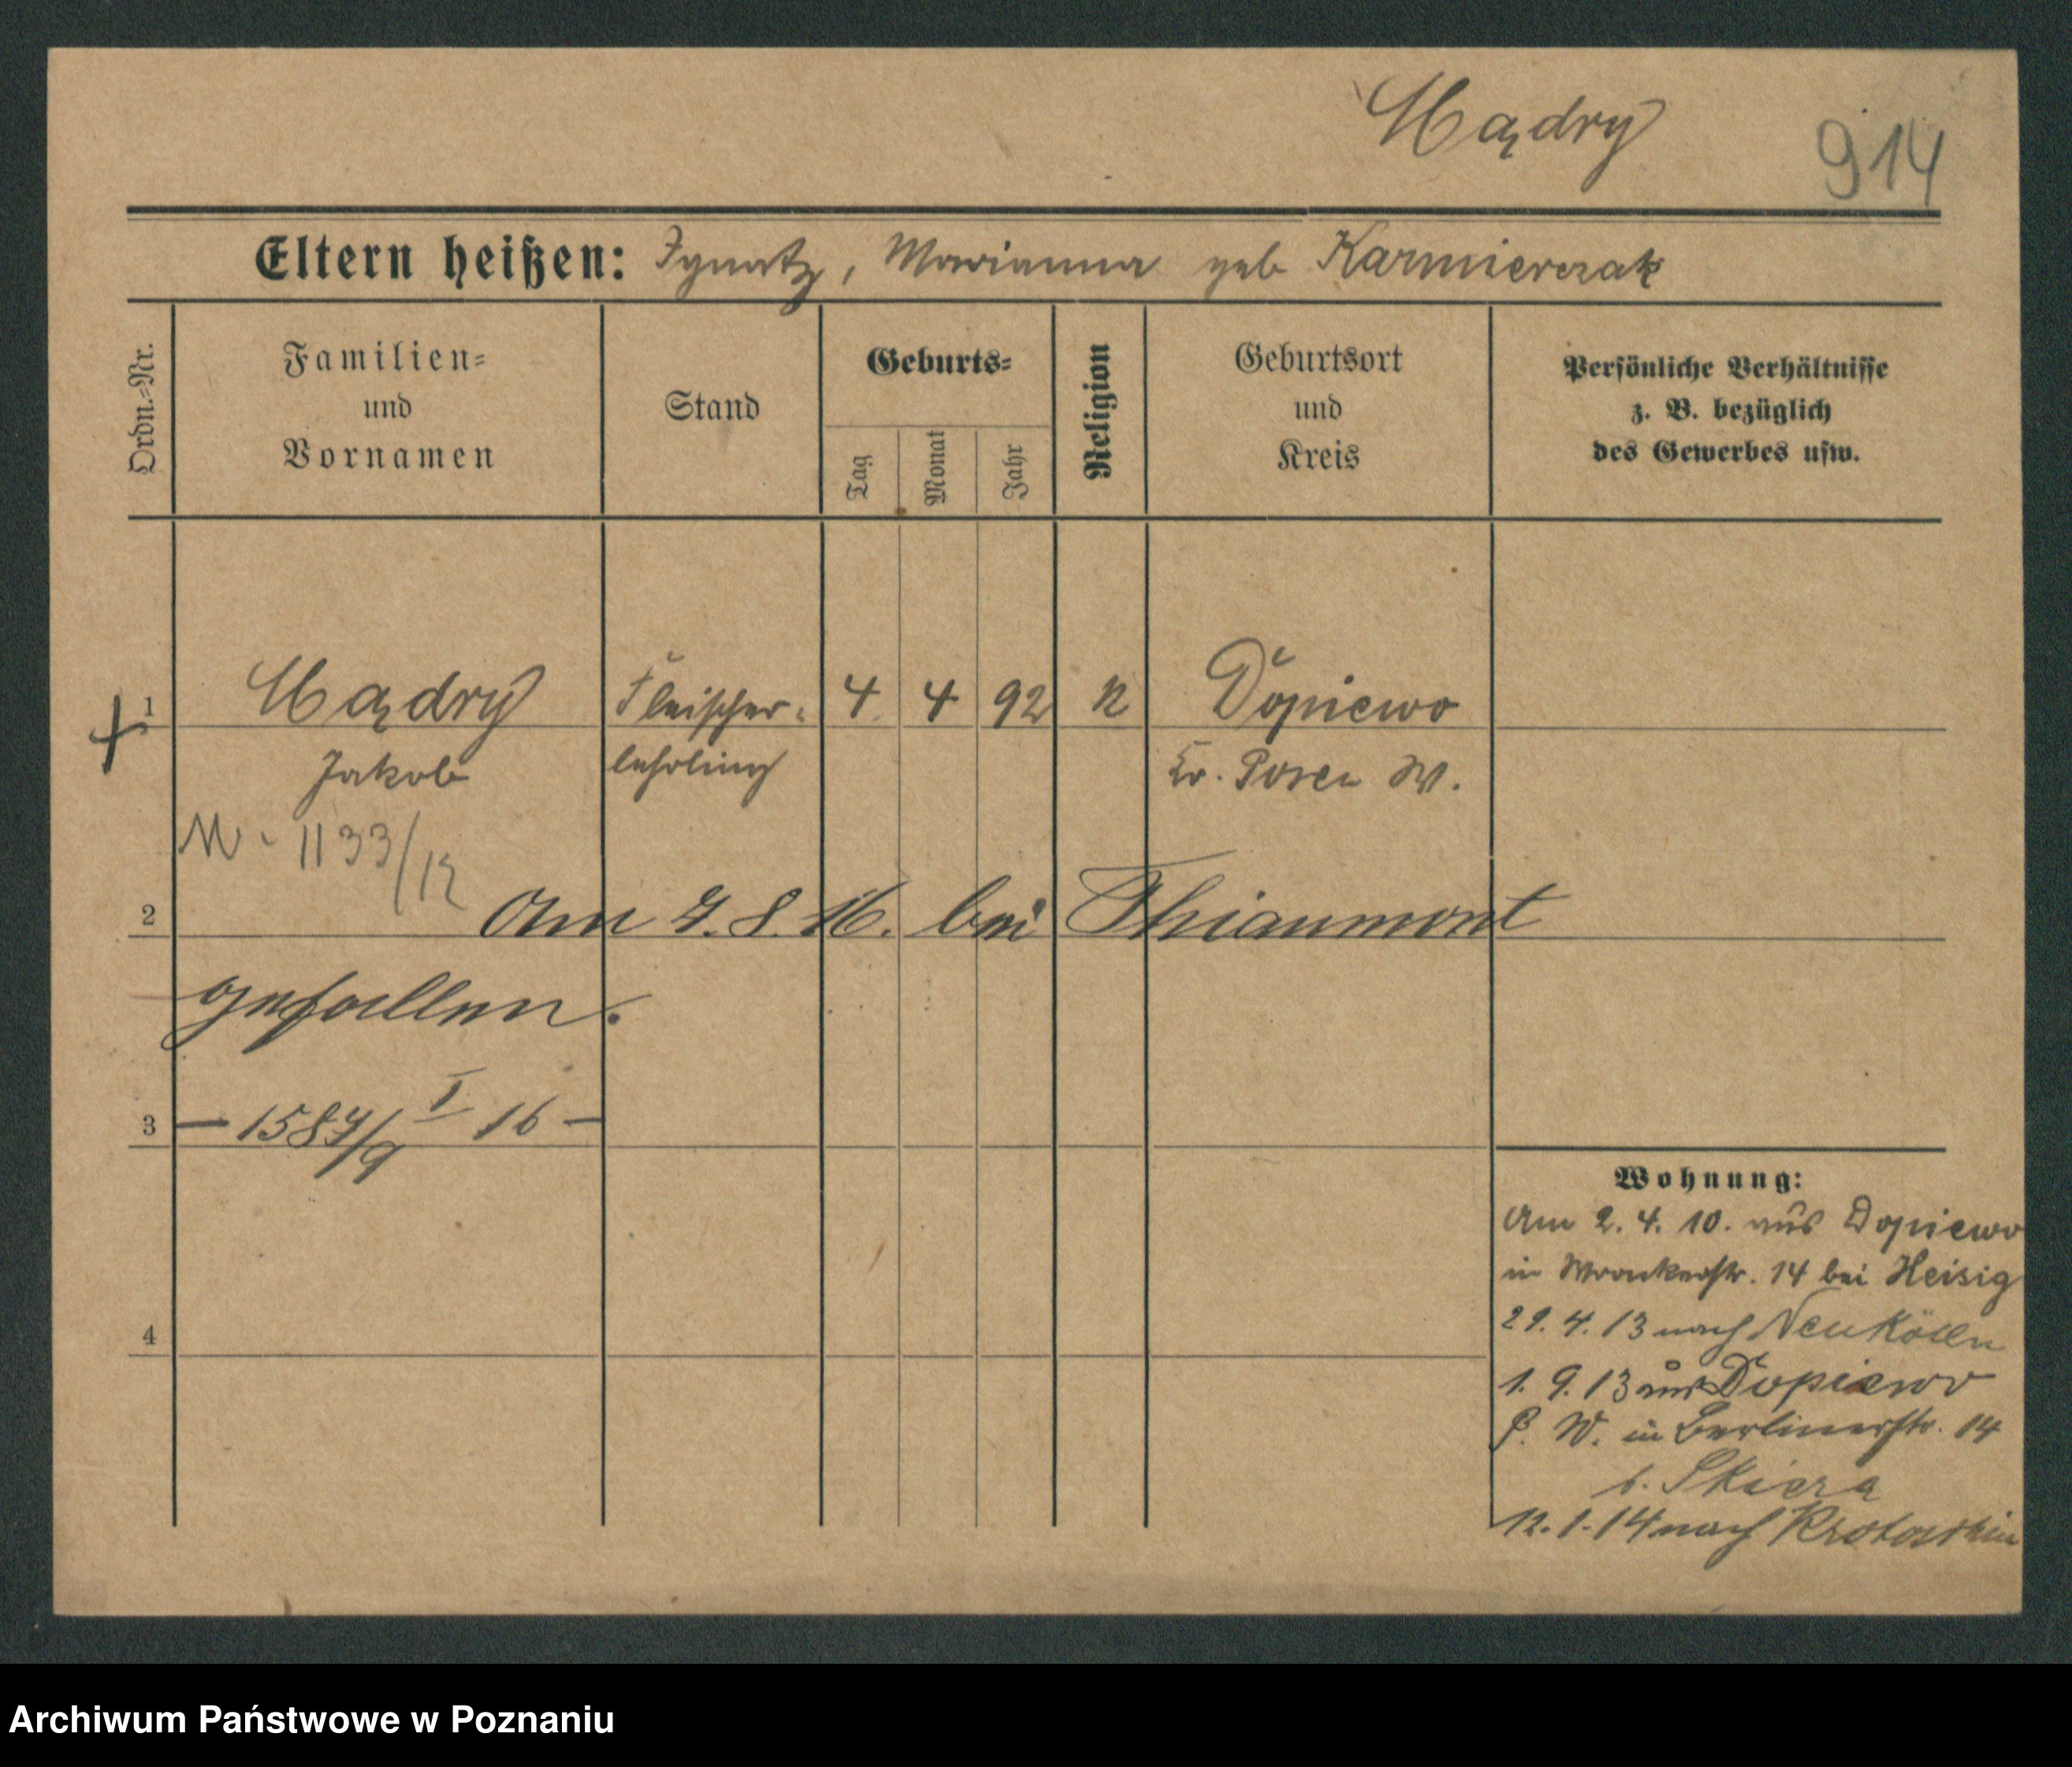 Mądry
914
Eltern heißen: Ignatz, Marianna geb Kazmierczak
Ordn.-Nr.
Familien-
und
Vornamen
Stand
Geburts-
Tag
Monat
Jahr
Religion
Geburtsort
und
Kreis
Persönliche Verhältnisse
z. B. bezüglich
des Gewerbes usw.
1 Mądry Fleischer- 4 4 92 k Dopiewo
Jakob lehrling Kr. Posen W.
M. 1133/12
2 Am 7. 8. 16. bei Thiaumont
gefallen.
3 — 1587/9 I 16 —
4
Wohnung:
Am 2. 4. 10. aus Dopiewo
in Wronkerstr. 14 bei Heisig
29. 4. 13 nach Neukölln
1. 9. 13 aus Dopiewo
P. W. in Berlinerstr. 14
b. Skiera
12. 1. 14 nach Krotoschin
Archiwum Państwowe w Poznaniu